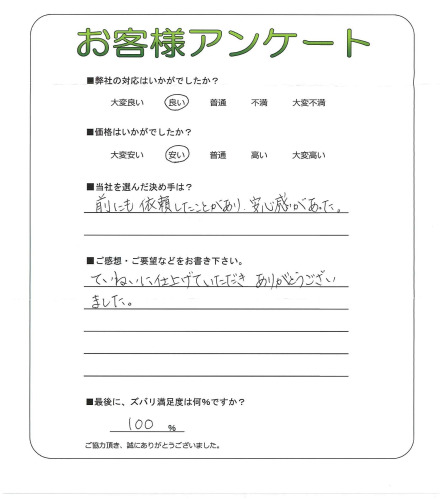 お客様アンケート
■弊社の対応はいかがでしたか？
大変良い 良い 普通 不満 大変不満
■価格はいかがでしたか？
大変安い 安い 普通 高い 大変高い
■当社を選んだ決め手は？
前にも依頼したことがあり、安心感があった。
■ご感想・ご要望などをお書き下さい。
ていねいに仕上げていただき ありがとうござい
ました。
■最後に、ズバリ満足度は何％ですか？
100 ％
ご協力頂き、誠にありがとうございました。